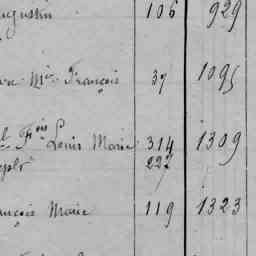 ugustin 106 929
François 37 1095
Fois Louis Marie 314 1309
222
ançois Marie 119 1323